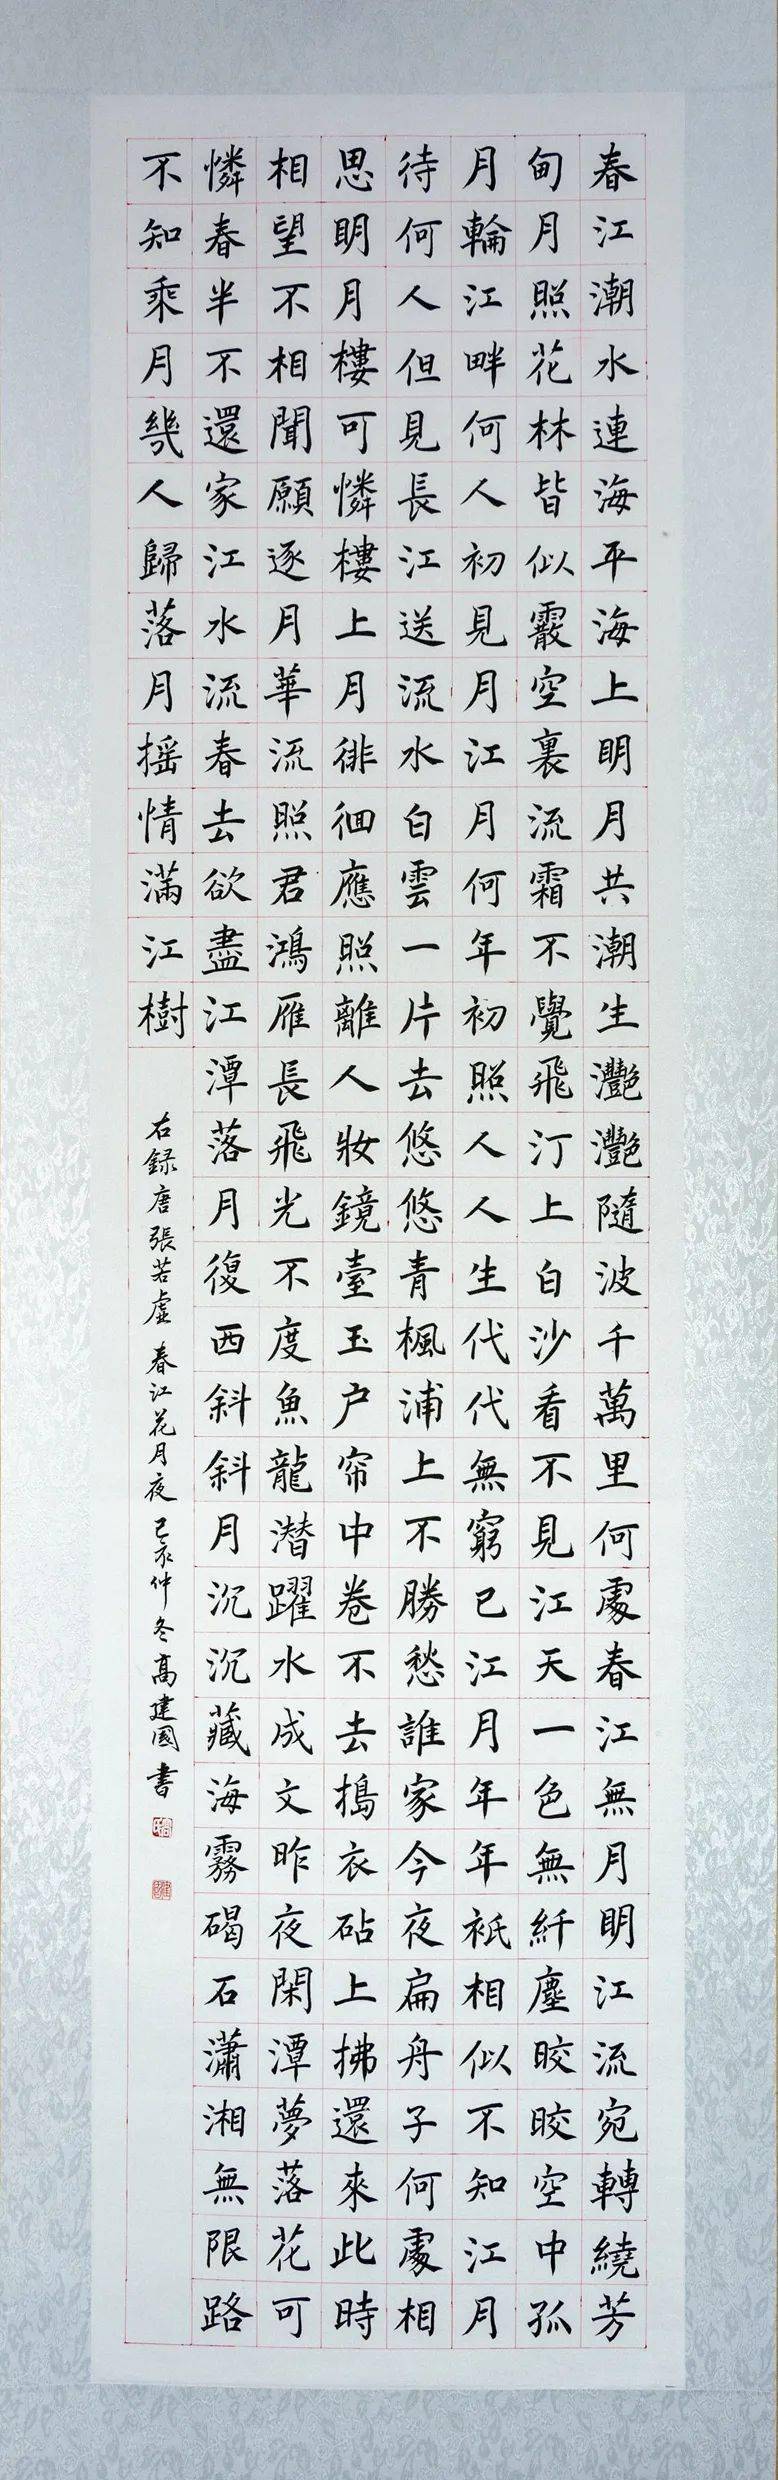 春江潮水連海平海上明月共潮生灩灩隨波千萬里何處春江無月明江流宛轉繞芳
甸月照花林皆似霰空裏流霜不覺飛汀上白沙看不見江天一色無纤塵皎皎空中孤
月輪江畔何人初見月江月何年初照人人生代代無窮已江月年年衹相似不知江月
待何人但見長江送流水白雲一片去悠悠青楓浦上不勝愁誰家今夜扁舟子何處相
思明月樓可憐樓上月徘徊應照離人妝鏡臺玉户帘中卷不去搗衣砧上拂還來此時
相望不相聞願逐月華流照君鴻雁長飛光不度魚龍潛躍水成文昨夜閑潭夢落花可
憐春半不還家江水流春去欲盡江潭落月復西斜斜月沉沉藏海霧碣石瀟湘無限路
不知乘月幾人歸落月摇情滿江樹
右録唐張若虚春江花月夜己亥仲冬高建國書